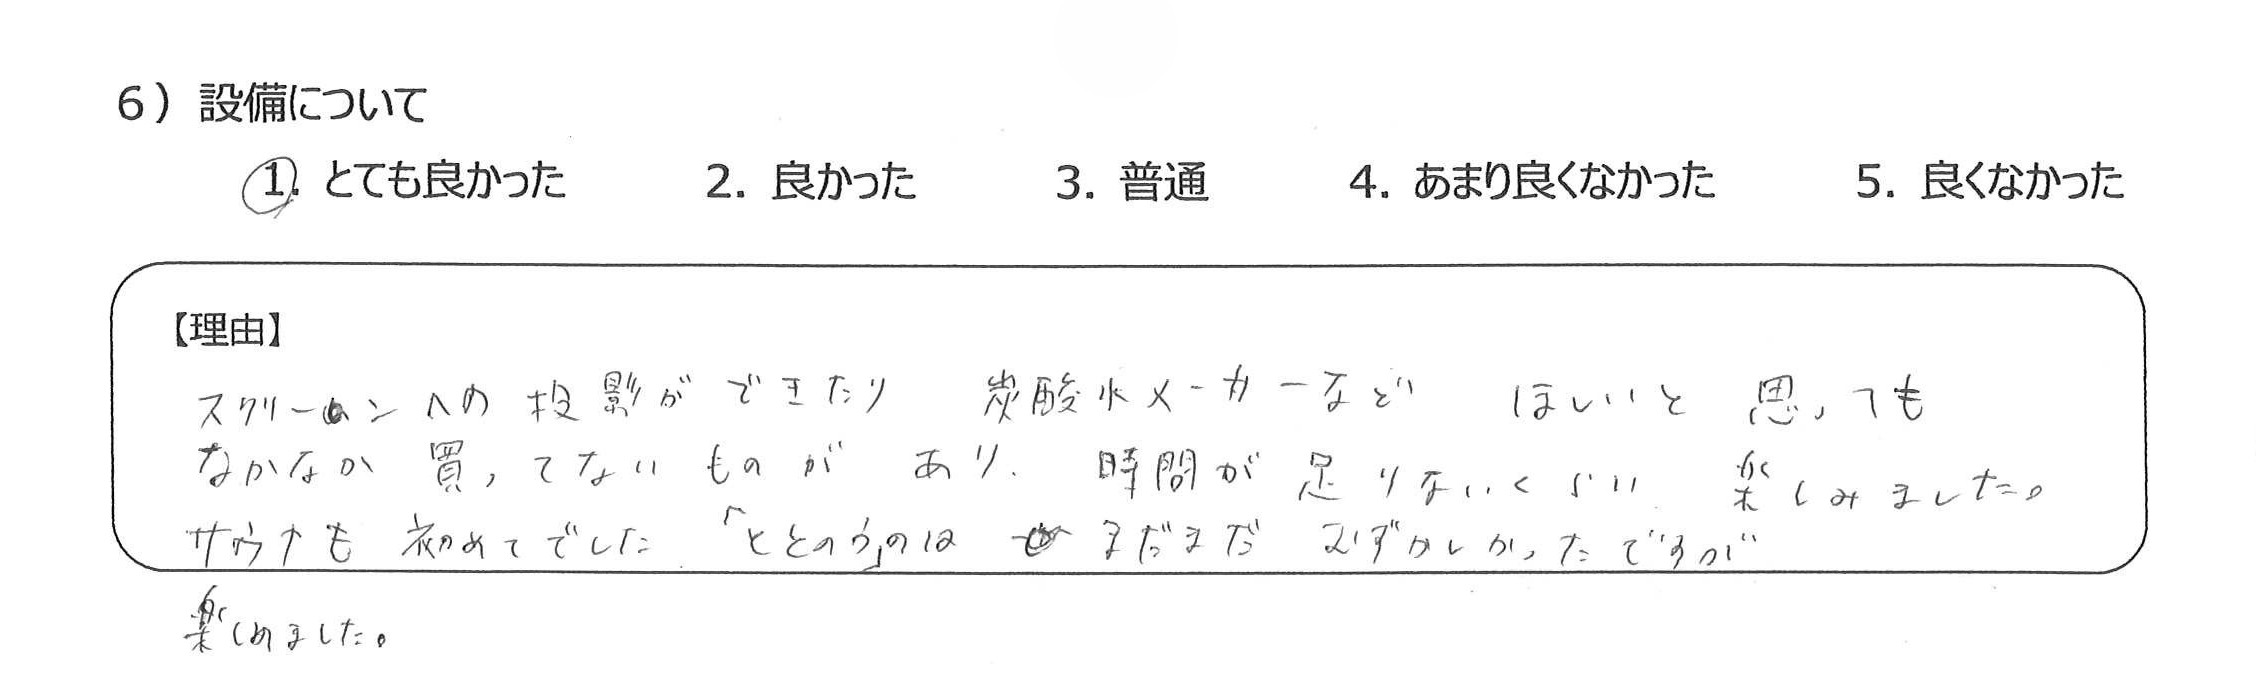 6）設備について
1. とても良かった 2. 良かった 3. 普通 4. あまり良くなかった 5. 良くなかった
【理由】
スクリーンへの投影ができたり 炭酸水メーカーなど ほしいと思っても
なかなか買ってないものがあり、時間が足りないくらい楽しみました。
サウナも初めてでした 「ととのう」のは まだまだ むずかしかったですが
楽しめました。